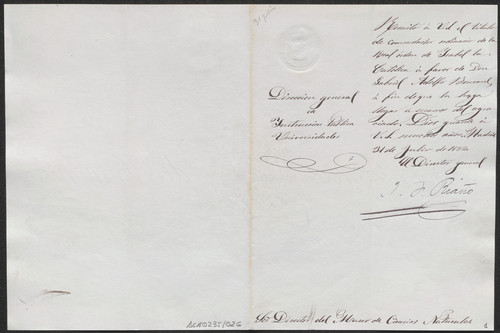 Dirección general
de
Instrucción Pública
Universidades
Remito à Vd. el título
de comendador ordinario de la
Real orden de Isabel la
Católica à favor de Don
Gabriel Adolfo
à fin de que la haga
llegar à manos del
Dios guarde à
Vd. muchos años. Madrid
31 de Julio de
El Director general
J. F. Riaño
Sr. Director del Museo de Ciencias Naturales
ACN0235/026